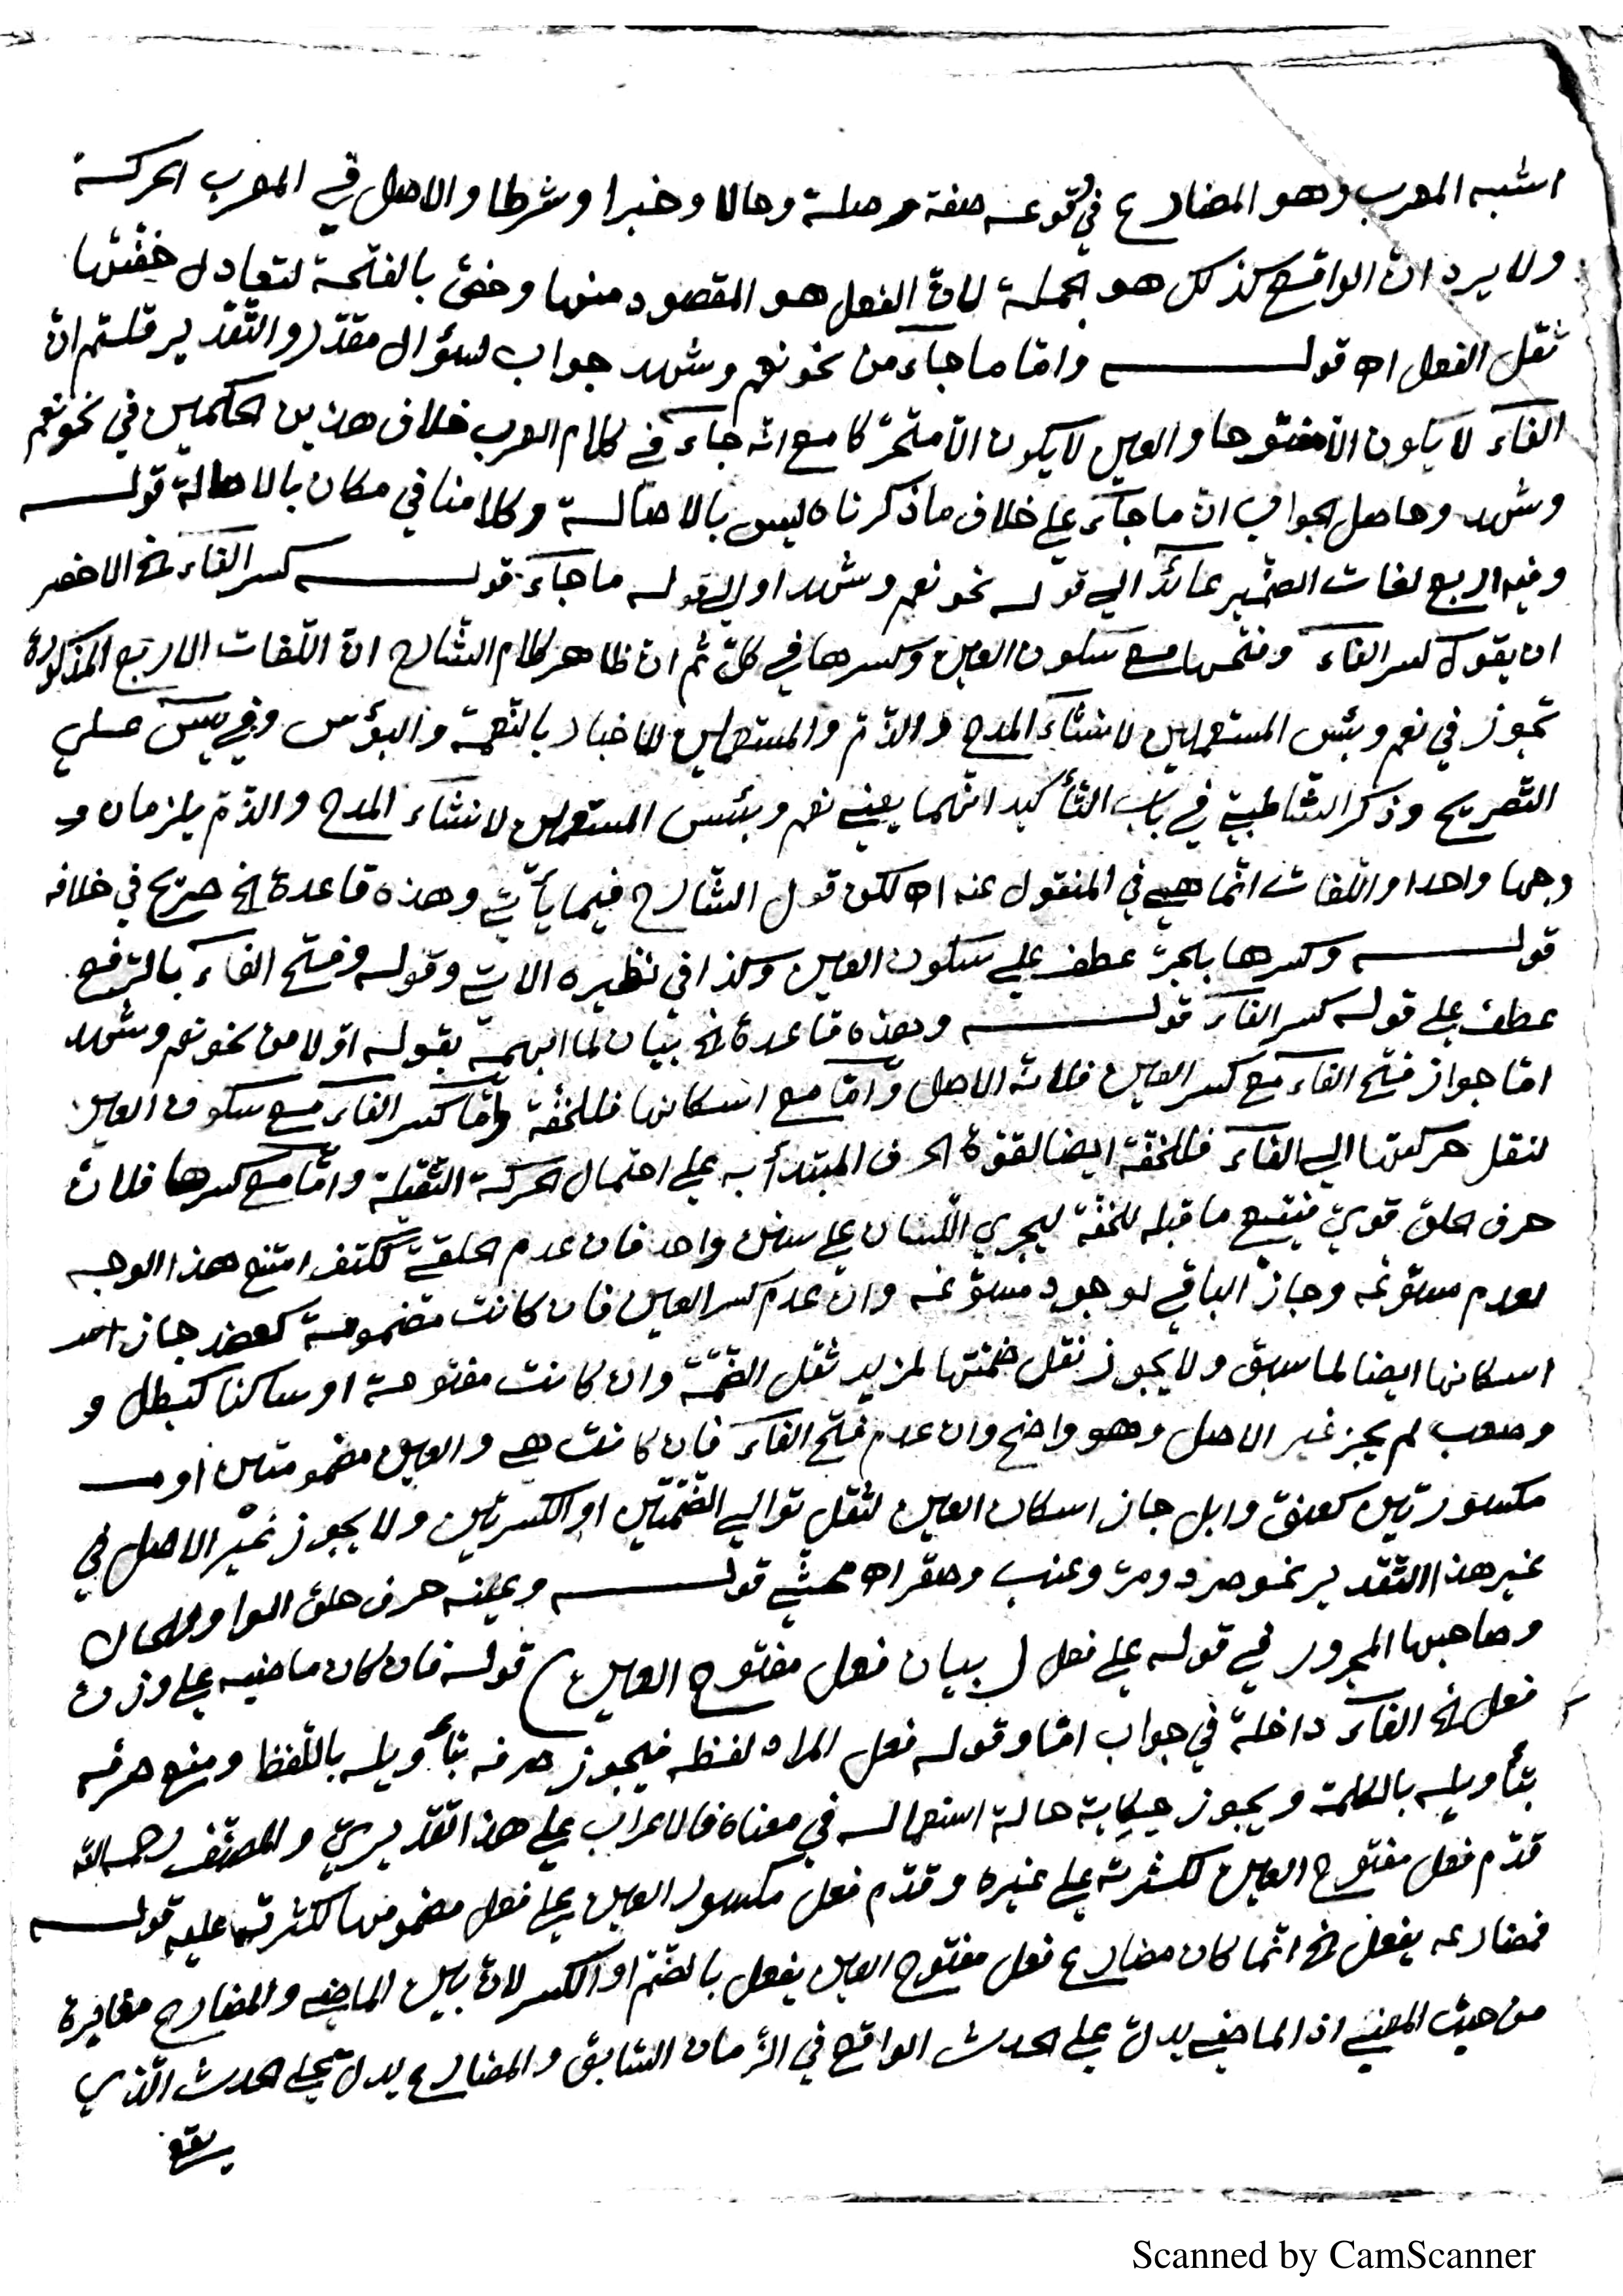 اشبه المعرب وهو المضارع في وقوعه صفة وصلة وحالا وخبرا وشرطا والاصل في المعرب الحركة
ولا يرد انّ الواقع كذلك هو الجملة لانّ الفعل هو المقصود منها وخصّ بالفتحة لتعادل خفّتها
ثقل الفعل اه قولـــه وامّا ما جآء من نحو نعم وشهد جواب لسؤال مقدّر والتّقدير قلتم انّ
الفآء لا يكون الاّ مفتوحا والعين لا يكون الاّ متحرّكا مع انّه جآء في كلام العرب خلاف هذين الحكمين في نحو نعم
وشهد وحاصل الجواب انّ ما جآء على خلاف ما ذكرناه ليس بالاصالـة وكلامنا في مكان بالاصالة قولـــه
وفيه اربع لغات الضّمير عائد الي قوله نحو نعم وشهد او الي قوله ما جآء قولـــه كسر الفآء الخ الاخصر
ان يقول كسر الفآء وفتحها مع سكون العين وكسرها في كلّ ثم ان ظاهر كلام الشّارح انّ اللّغات الاربع المذكورة
تجوز في نعم وبئس المستعملين لانشآء المدح والذّمّ والمستعملين للاخبار بالنّعمة والبؤس وفي يسٓ علي
التّصريح وذكر الشّاطبي في باب التّأكيد انّهما يعني نعم وبئس المستعملين لانشآء المدح والذّمّ يلزمان و
وجها واحدا واللّغات انّما هي في المنقول عنه اه لكن قول الشّارح فيما يأتي وهذه قاعدة الخ صريح في خلافه
قولـــه وكسرها بالجرّ عطف علي سكون العين وكذا في نظيره الاتي وقوله وفتح الفآء بالرّفع
عطف علي قوله كسر الفآء قولـــه وهذه قاعدة الخ بيان لما ابهمه بقوله اوّلا من نحو نعم وشهد
امّا جواز فتح الفآء مع كسر العين فلانّه الاصل وامّا مع اسكانها فللخفّة وامّا كسر الفآء مع سكون العين
لنقل حركتها الي الفآء فللخفّة ايضا لقوّة الحرف المبتدأ به علي احتمال الحركة الثّقيلة وامّا مع كسرها فلانّ
حرف الحلق قويّ فيتبع ما قبله للخفّة ليجري اللّسان علي سنن واحد فان عدم الحلقيّة ككتف امتنع هذا الوجه
لعدم مسوّغه وجاز الباقي لوجود مسوّغه وان عدم كسر العين فان كانت مضمومة كعضد جاز
اسكانها ايضا لما سبق ولا يجوز نقل ضمّتها لمزيد ثقل الضّمّة وان كانت مفتوحة او ساكنا كبطل و
وصعب لم يجز غير الاصل وهو واضح وان عدم فتح الفآء فان كانت هي والعين مضمومتين او مـ
مكسورتين كعنق وابل جاز اسكان العين لثقل توالي الضّمّتين او الكسرتين ولا يجوز غير الاصل في
غير هذا التّقدير نحو صرد ومرّ وعنب وصقر اه محشّي قولـــه وعينه حرف حلق الواو للحال
وصاحبها المجرور في قوله علي فعل ( بيان فعل مفتوح العين ) قوله فان كان ماضيه علي وزن
فعل الخ الفآء داخلة في جواب امّا وقوله فعل المراد لفظه فيجوز صرفه بتأويله باللّفظ ومنع صرفه
بتأويله بالكلمة ويجوز حكاية حالة استعماله في معناه فالاعراب علي هذا تقديريّ والمصنّف رحمه الله
قدّم فعل مفتوح العين لكثرته علي غيره وقدّم فعل مكسور العين علي فعل مضمومها لكثرته عليه قولـــه
فمضارعه يفعل الخ انّما كان مضارع فعل مفتوح العين يفعل بالضّمّ او الكسر لانّ بين الماضي والمضارع مغايرة
من حيث المعني اذ الماضي يدلّ علي الحدث الواقع في الزّمان السّابق والمضارع يدلّ علي الحدث الّذي
يقع
Scanned by CamScanner